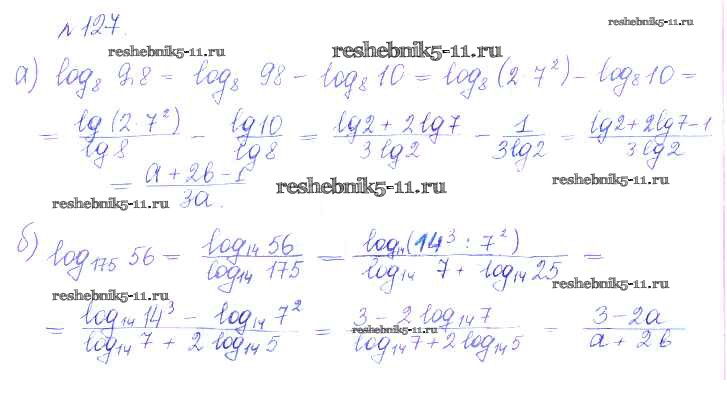 reshebnik5-11.ru
№ 127.
reshebnik5-11.ru reshebnik5-11.ru
а) log₈ 9,8 = log₈ 98 − log₈ 10 = log₈ (2·7²) − log₈ 10 =
= lg(2·7²)/lg8 − lg10/lg8 = (lg2 + 2lg7)/(3lg2) − 1/(3lg2) = (lg2+2lg7−1)/(3lg2)
= (a+2b−1)/(3a).
reshebnik5-11.ru reshebnik5-11.ru reshebnik5-11.ru
б) log₁₇₅ 56 = log₁₄ 56/log₁₄ 175 = log₁₄(14³ : 7²)/(log₁₄ 7 + log₁₄ 25) =
reshebnik5-11.ru reshebnik5-11.ru
= (log₁₄ 14³ − log₁₄ 7²)/(log₁₄ 7 + 2 log₁₄ 5) = (3 − 2 log₁₄ 7)/(log₁₄ 7 + 2 log₁₄ 5) = (3−2a)/(a+2b)
reshebnik5-11.ru